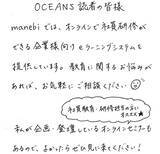 OCEANS 読者の皆様
manebiでは、オンラインで社員研修が
できる企業様向けeラーニングシステムを
提供しています。教育に関するお悩みが
あれば、お気軽にご相談ください
社員教育・研修担当の方に
オススメ★
私が企画・登壇しているオンラインセミナーも
あるので、よかったらぜひ見に来てください！